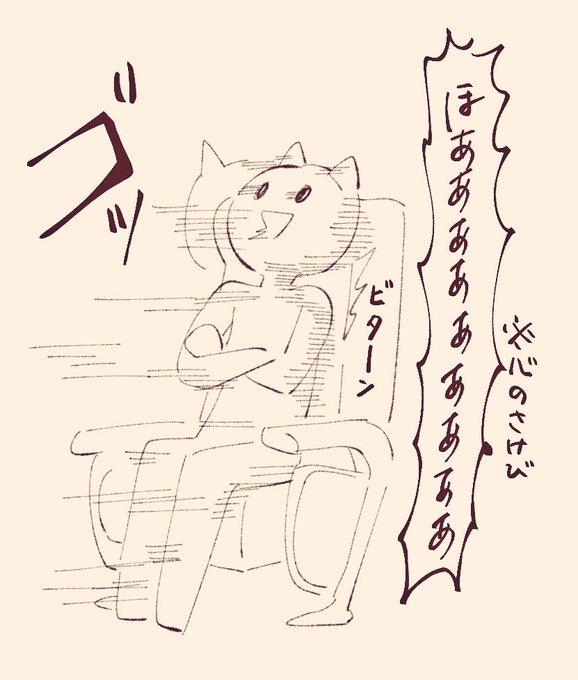 ほあああああああああ
※心のさけび
ビターン
ゴッ